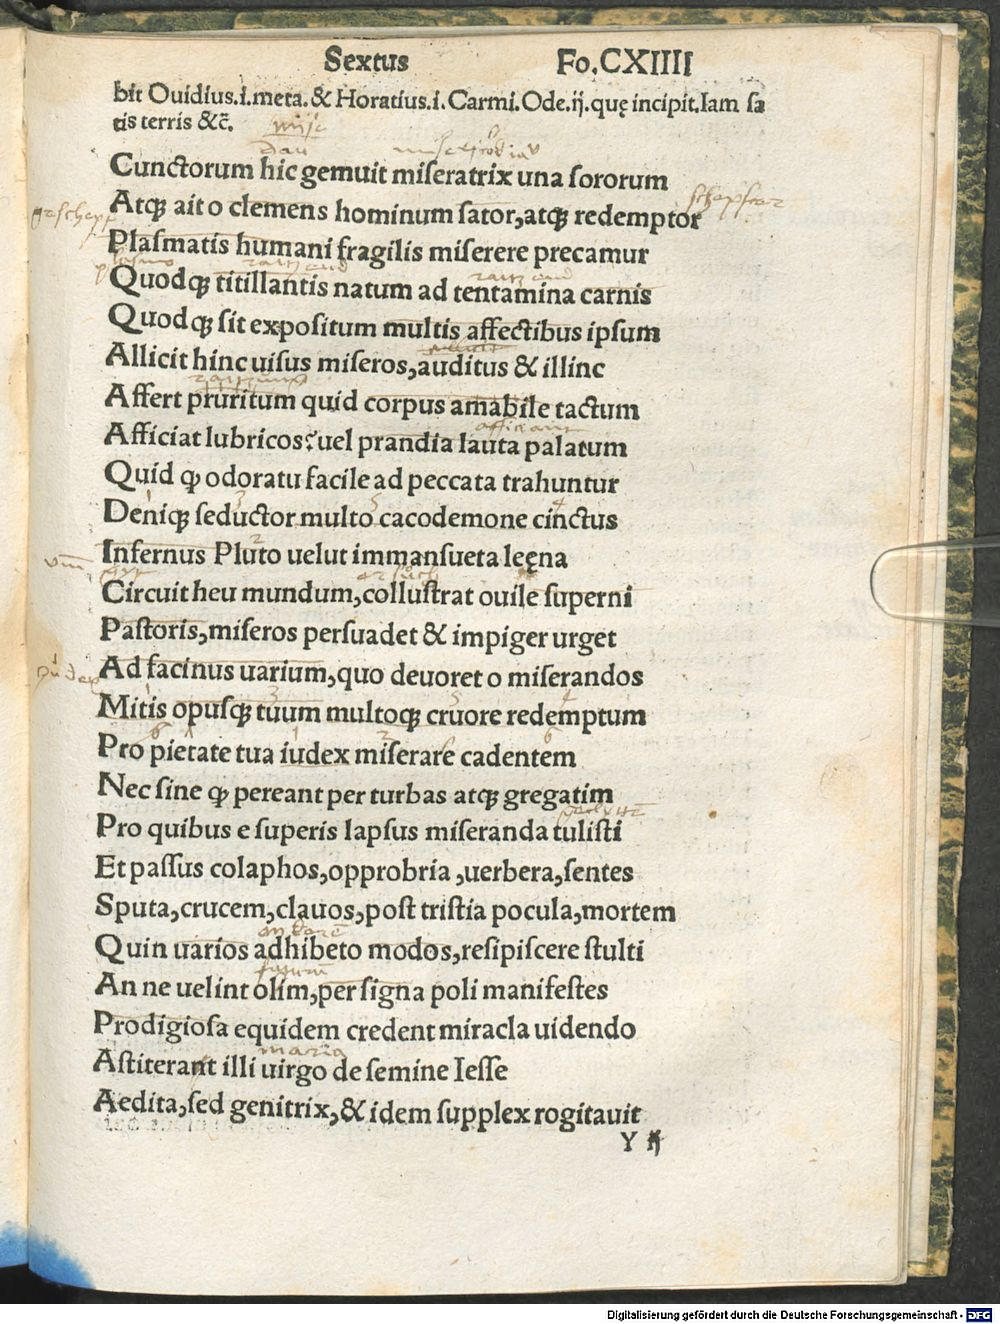 Sextus Fo.CXIIII
bit Ouidius.i.meta.& Horatius.i.Carmi.Ode.ij.quę incipit.Iam ſa
tis terris &c̄.
Cunctorum hic gemuit miſeratrix una ſororum
Atqꝫ ait o clemens hominum ſator,atqꝫ redemptor
Plaſmatis humani fragilis miſerere precamur
Quodqꝫ titillantis natum ad tentamina carnis
Quodqꝫ ſit expoſitum multis affectibus ipſum
Allicit hinc uiſus miſeros,auditus & illinc
Affert pruritum quid corpus amabile tactum
Afficiat lubricos?uel prandia lauta palatum
Quid ꝙ odoratu facile ad peccata trahuntur
Deniqꝫ ſeductor multo cacodemone cinctus
Infernus Pluto uelut immanſueta leęna
Circuit heu mundum,colluſtrat ouile ſuperni
Paſtoris,miſeros perſuadet & impiger urget
Ad facinus uarium,quo deuoret o miſerandos
Mitis opuſqꝫ tuum multoqꝫ cruore redemptum
Pro pietate tua iudex miſerare cadentem
Nec ſine ꝙ pereant per turbas atqꝫ gregatim
Pro quibus e ſuperis lapſus miſeranda tuliſti
Et paſſus colaphos,opprobria ,uerbera,ſentes
Sputa,crucem,clauos,poſt triſtia pocula,mortem
Quin uarios adhibeto modos,reſipiſcere ſtulti
An ne uelint olim,per ſigna poli manifeſtes
Prodigioſa equidem credent miracla uidendo
maria
Aſtiterant illi uirgo de ſemine Ieſſe
Aedita,ſed genitrix,& idem ſupplex rogitauit
Y ij
Digitalisierung gefördert durch die Deutsche Forschungsgemeinschaft - DFG